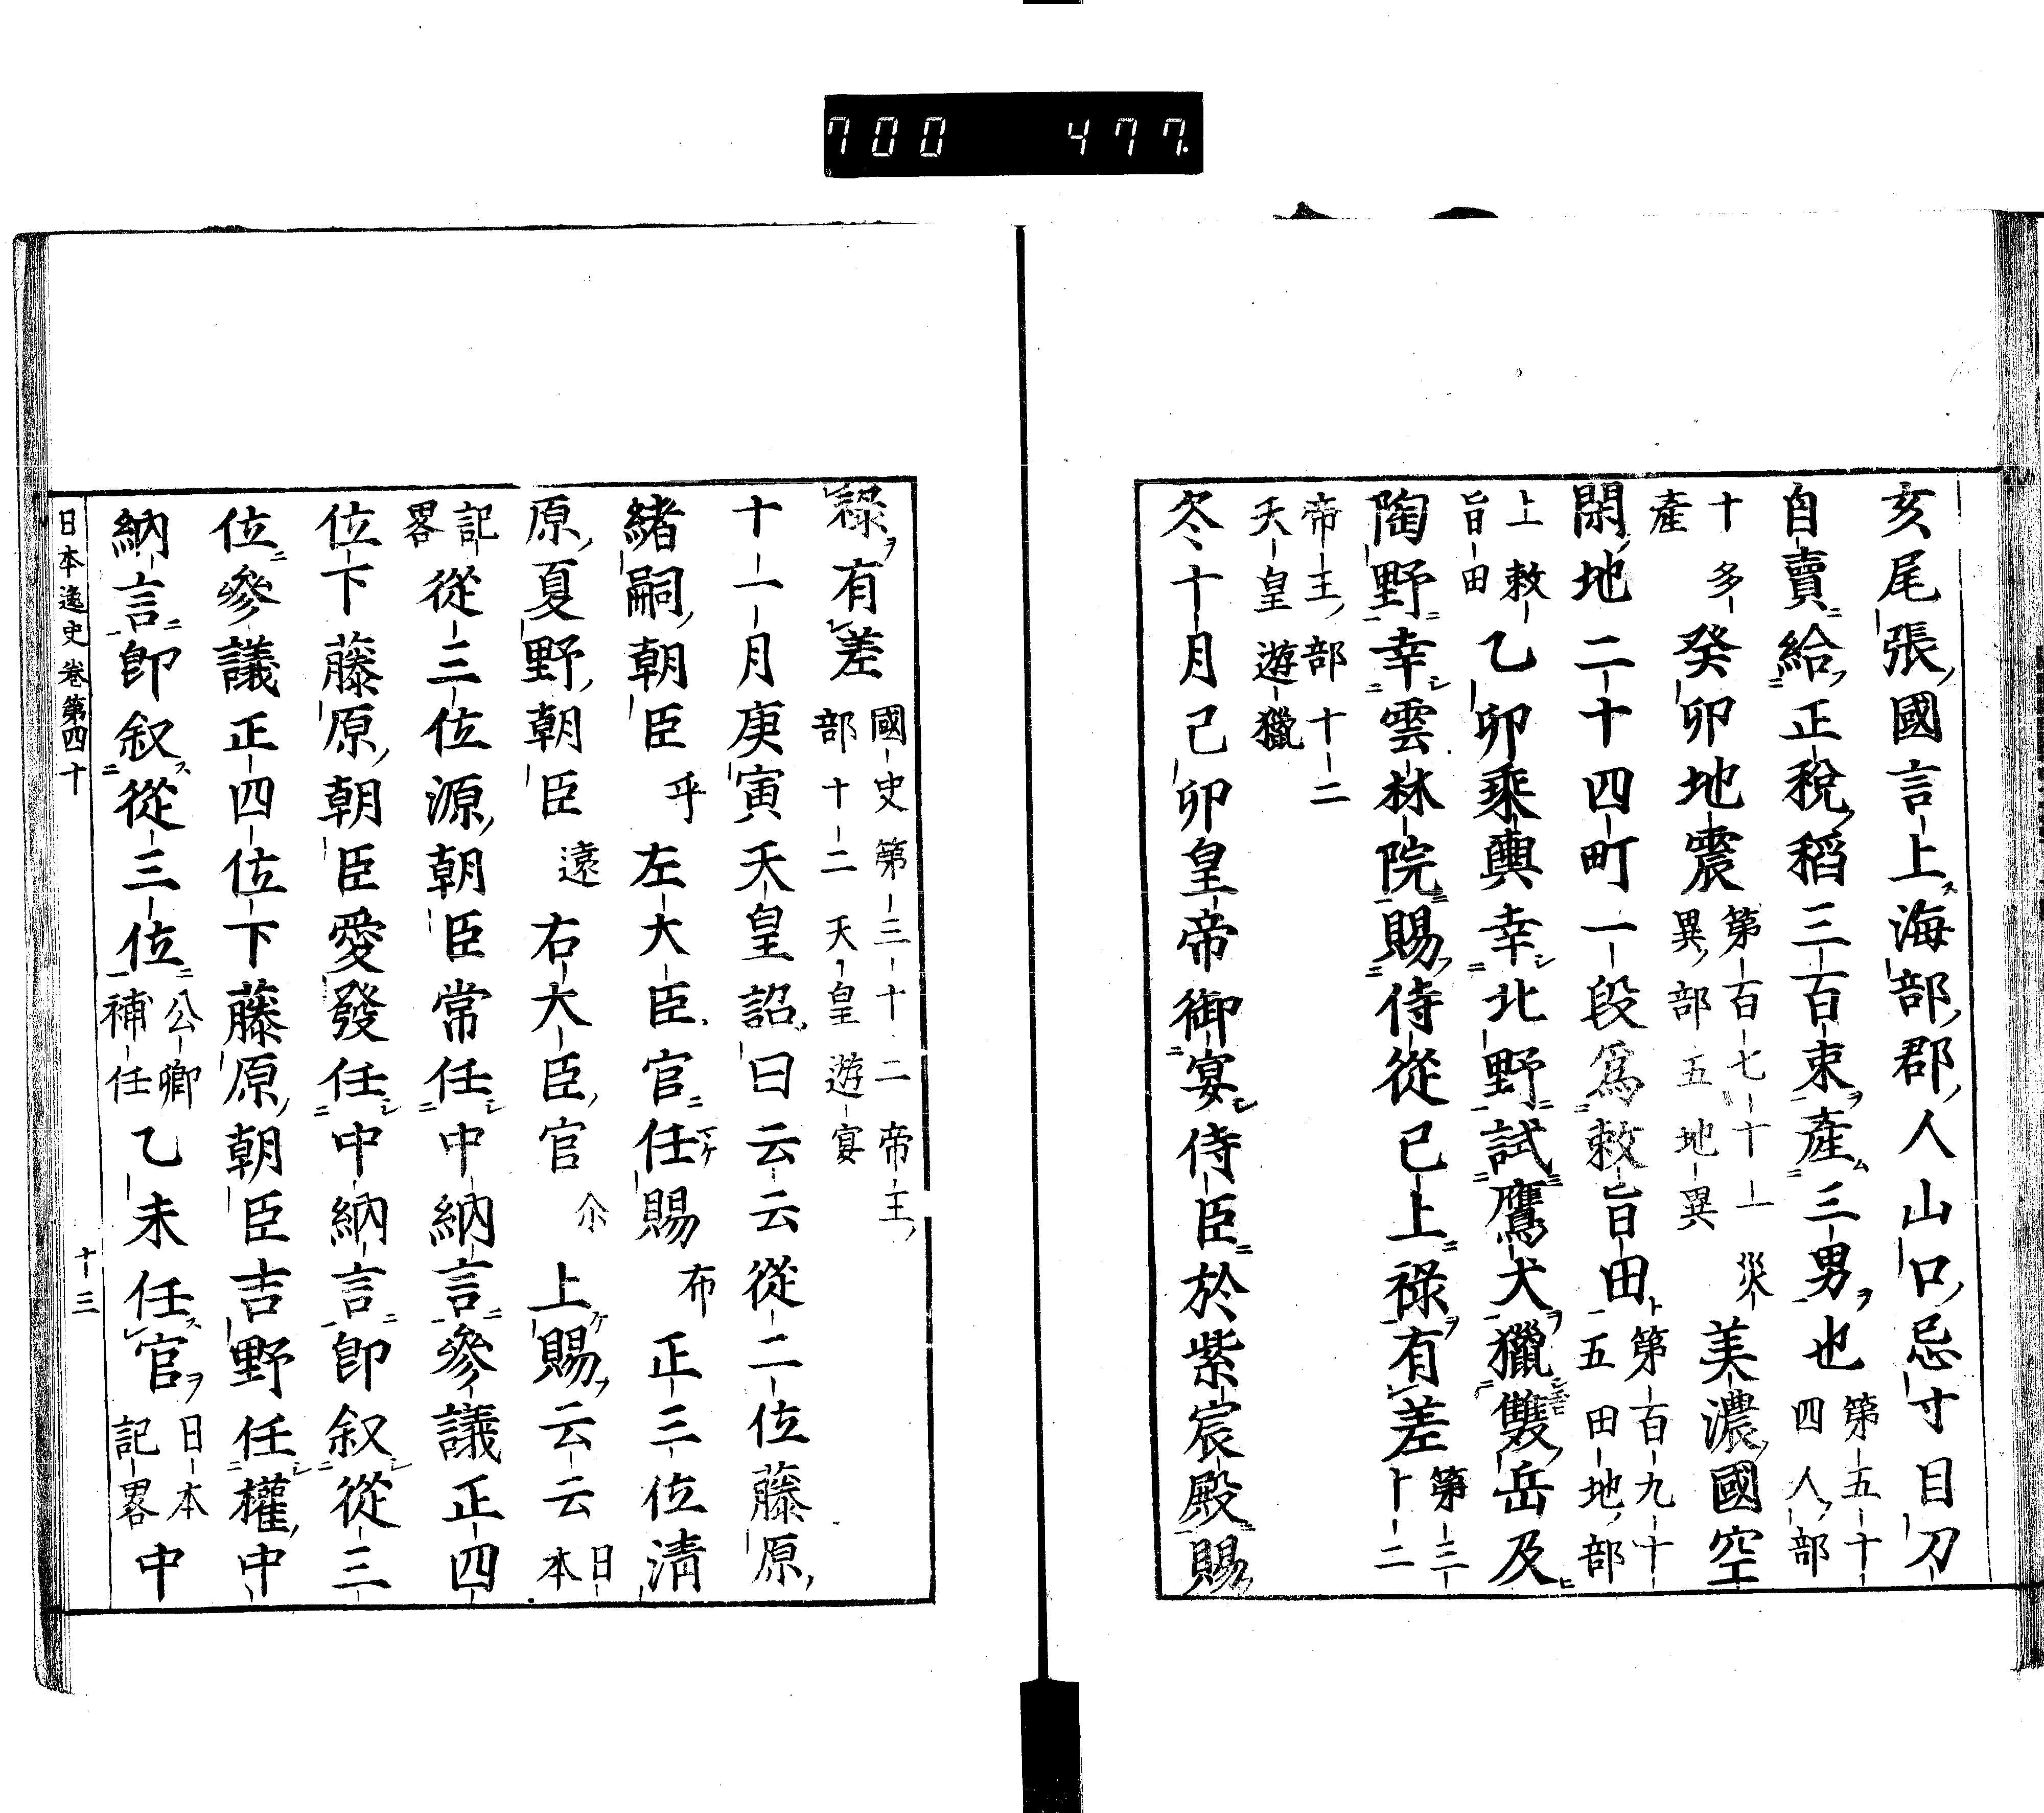 700 477.
亥尾張國言上海部郡人山口忌寸目刀
自賣給正稅稻三百束產三男也 第五十四人部
十多產 癸卯地震 第百七十一災異部五地異 美濃國空
閑地二十四町一段爲敕旨田 第百九十五田地部
上敕旨田 乙卯乘輿幸北野試鷹犬獵雙岳及
陶野幸雲林院賜侍從已上祿有差 第三十二
帝王部十二天皇遊獵
冬十月己卯皇帝御宴侍臣於紫宸殿賜
祿有差 國史第三十二帝王部十二天皇遊宴
十一月庚寅天皇詔曰云云從二位藤原
緒嗣朝臣乎左大臣官任賜布正三位淸
原夏野朝臣遠右大臣官尒上賜云云 日本
記畧 從三位源朝臣常任中納言參議正四
位下藤原朝臣愛發任中納言卽叙從三
位參議正四位下藤原朝臣吉野任權中
納言卽叙從三位 公卿補任 乙未任官 日本記畧 中
日本逸史卷第四十 十三